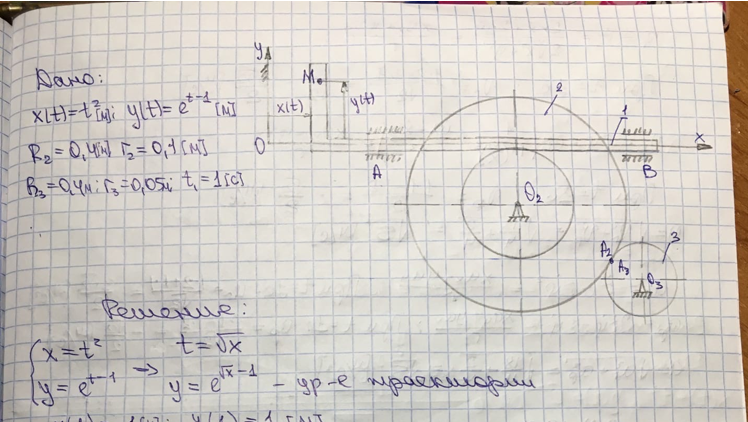 Дано:
x(t)=t²[м]; y(t)=e^(t-1) [м]
R₂=0,4[м] r₂=0,1[м]
R₃=0,4м; r₃=0,05м; t₁=1[с]
y
M
x(t)
y(t)
O
A
2
1
x
B
O₂
A₂
A₃
3
O₃
Решение:
x=t² t=√x
y=e^(t-1) → y=e^(√x-1) - ур-е траектории